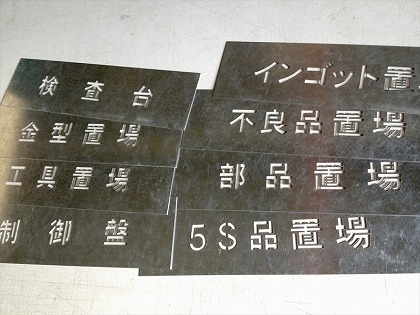 検査台
金型置場
工具置場
制御盤
インゴット置
不良品置場
部品置場
5S品置場